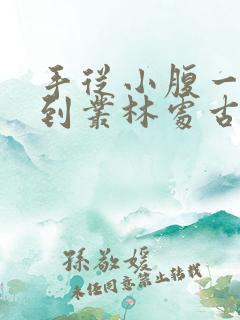 手從小腹一
到叢林處古
孫敬媛
未經同意禁止轉載